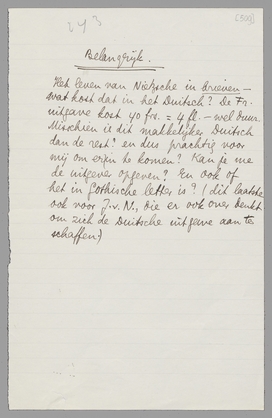 (500)
Belangrijk.
Het leven van Nietzsche in brieven –
wat kost dat in het Duitsch? De Fr.
uitgave kost 40 frs. = 4 fl. – wel duur.
Misschien is dit makkelijker Duitsch
dan de rest? en dus prachtig voor
mij om erin te komen? Kan je me
de uitgever opgeven? En ook of
het in Gothische letter is? (dit laatste
ook voor J.v.N., die er ook over denkt
om zich de Duitsche uitgave aan te
schaffen.)